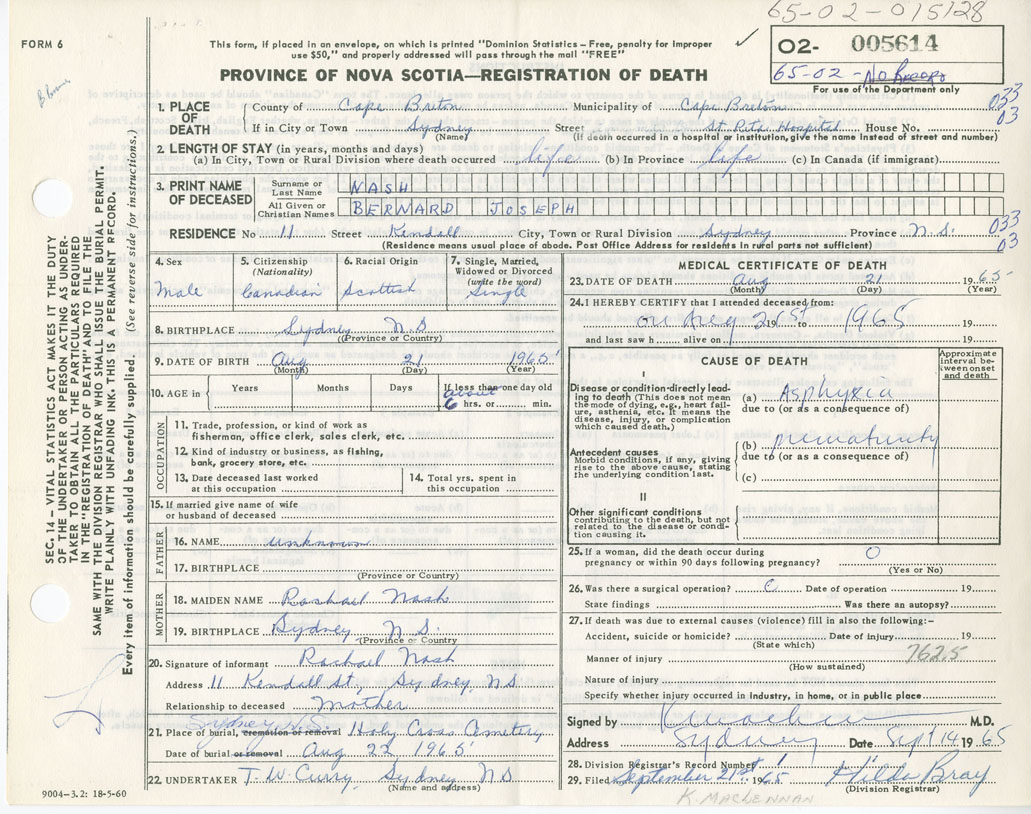 65-02-015128
FORM 6
This form, if placed in an envelope, on which is printed "Dominion Statistics - Free, penalty for improper
use $50," and properly addressed will pass through the mail "FREE"
02- 005614
65-02 -
PROVINCE OF NOVA SCOTIA—REGISTRATION OF DEATH
For use of the Department only
1. PLACE OF DEATH
County of Cape Breton Municipality of Cape Breton 033
If in City or Town Sydney Street St Rita Hospital House No. 03
(Name) (If death occurred in a hospital or institution, give the name instead of street and number)
2. LENGTH OF STAY (in years, months and days)
(a) In City, Town or Rural Division where death occurred life (b) In Province life (c) In Canada (if immigrant)
3. PRINT NAME OF DECEASED
Surname or Last Name NASH
All Given or Christian Names BERNARD JOSEPH
RESIDENCE No 11 Street Kendall City, Town or Rural Division Sydney Province N.S. 033
(Residence means usual place of abode. Post Office Address for residents in rural parts not sufficient) 03
4. Sex
Male
5. Citizenship (Nationality)
Canadian
6. Racial Origin
Scottish
7. Single, Married, Widowed or Divorced (write the word)
Single
8. BIRTHPLACE Sydney N.S
(Province or Country)
9. DATE OF BIRTH Aug 21 1965
(Month) (Day) (Year)
10. AGE in Years Months Days If less than one day old
about
6 hrs. or min.
OCCUPATION
11. Trade, profession, or kind of work as
fisherman, office clerk, sales clerk, etc.
12. Kind of industry or business, as fishing,
bank, grocery store, etc.
13. Date deceased last worked
at this occupation
14. Total yrs. spent in
this occupation
15. If married give name of wife
or husband of deceased
FATHER
16. NAME unknown
17. BIRTHPLACE
(Province or Country)
MOTHER
18. MAIDEN NAME Rachael Nash
19. BIRTHPLACE Sydney N.S.
(Province or Country
20. Signature of informant Rachael Nash
Address 11 Kendall St., Sydney, N.S
Relationship to deceased Mother
Sydney N.S
21. Place of burial, cremation or removal Holy Cross Cemetery
Date of burial or removal Aug 22 1965
22. UNDERTAKER T. W. Curry, Sydney NS
(Name and address)
9004-3.2: 18-5-60
MEDICAL CERTIFICATE OF DEATH
23. DATE OF DEATH Aug 21 1965
(Month) (Day) (Year)
24. I HEREBY CERTIFY that I attended deceased from:
on Aug 21st 19 to 1965 19
and last saw h alive on 19
CAUSE OF DEATH
Approximate interval between onset and death
I
Disease or condition directly leading to death (This does not mean the mode of dying, e.g., heart failure, asthenia, etc. It means the disease, injury, or complication which caused death.)
(a) Asphyxia
due to (or as a consequence of)
Antecedent causes
Morbid conditions, if any, giving rise to the above cause, stating the underlying condition last.
(b) prematurity
due to (or as a consequence of)
(c)
II
Other significant conditions
contributing to the death, but not related to the disease or condition causing it.
25. If a woman, did the death occur during
pregnancy or within 90 days following pregnancy? O
(Yes or No)
26. Was there a surgical operation? Date of operation 19
State findings Was there an autopsy?
27. If death was due to external causes (violence) fill in also the following:-
Accident, suicide or homicide? Date of injury 19
(State which)
Manner of injury 762.5
(How sustained)
Nature of injury
Specify whether injury occurred in industry, in home, or in public place
Signed by M.D.
Address Sydney Date Sept 14 1965
28. Division Registrar's Record Number 1
29. Filed September 21st 1965 Hilda Bray
(Division Registrar)
K. MACLENNAN
SEC. 14 — VITAL STATISTICS ACT MAKES IT THE DUTY
OF THE UNDERTAKER OR PERSON ACTING AS UNDER-
TAKER TO OBTAIN ALL THE PARTICULARS REQUIRED
IN THE "REGISTRATION OF DEATH" AND TO FILE THE
SAME WITH THE DIVISION REGISTRAR WHO SHALL ISSUE THE BURIAL PERMIT.
WRITE PLAINLY WITH UNFADING INK. THIS IS A PERMANENT RECORD.
Every item of information should be carefully supplied. (See reverse side for instructions.)